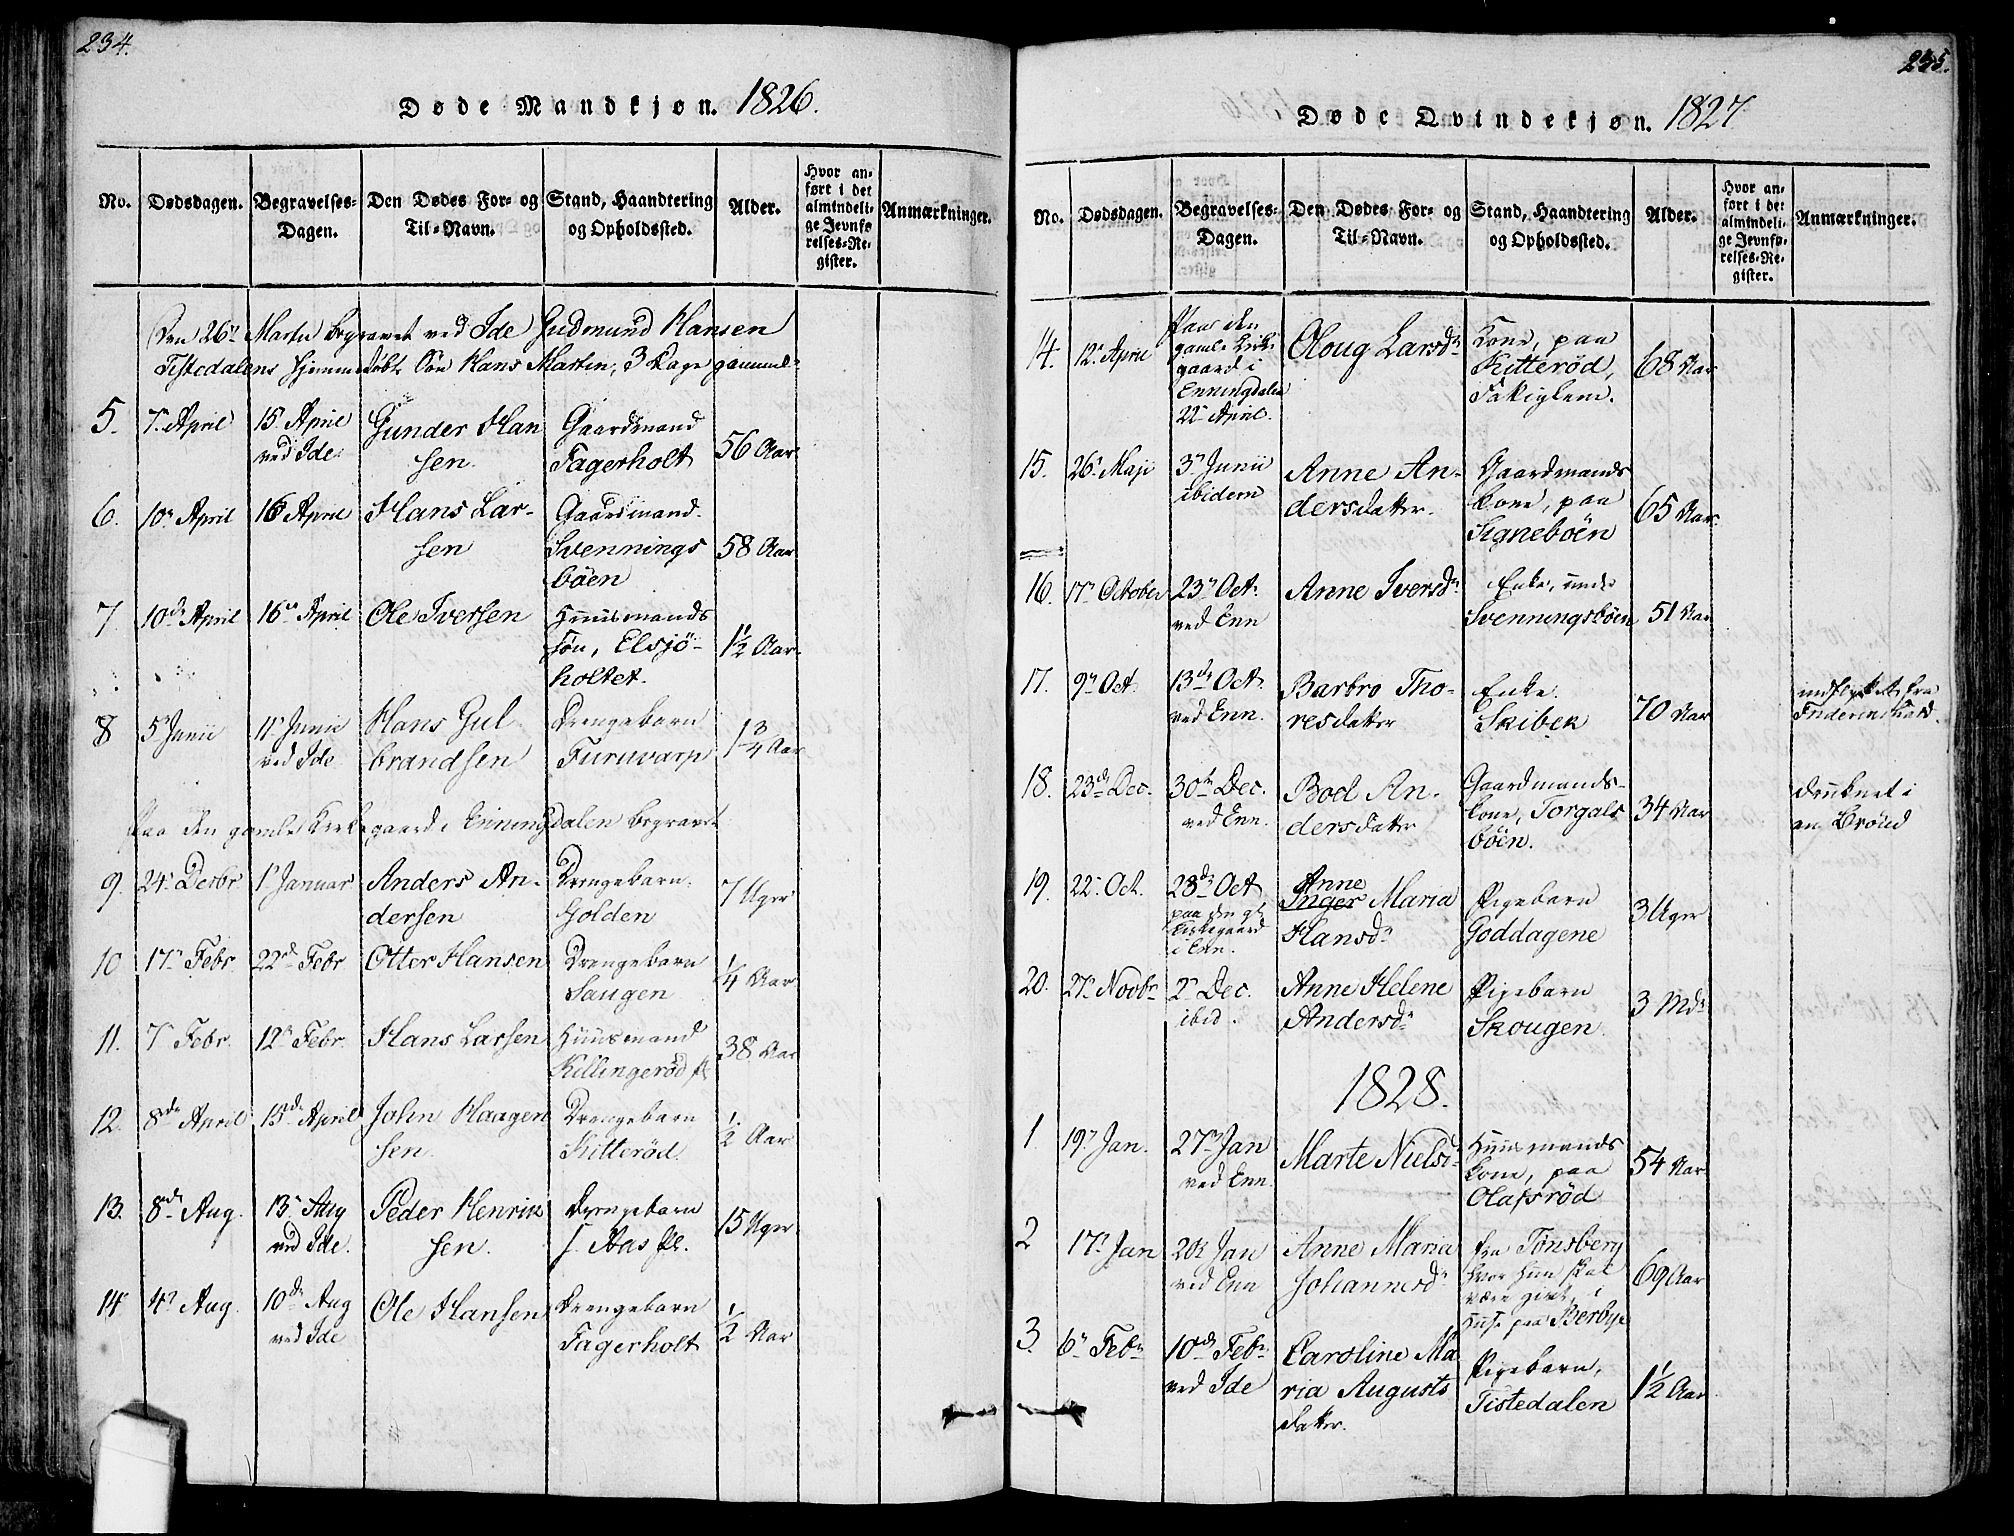 234.
Døde Mandkjøn. 1826.
No. Dødsdagen. Begravelses-Dagen. Den Dødes For- og Til-Navn. Stand, Haandtering og Opholdssted. Alder. Hvor anført i det almindelige Jevnførelses-Register. Anmærkninger.
Den 26de Martii begravet ved Ide Gudmund Hansen
Tistedalens hjemmedøbt Søn Hans Martin, 3 Dage gammel
5. 7. April 15. April ved Ide. Gunder Hansen. Gaardmand Fagerholt 56 Aar
6. 10. April 16 April Hans Larsen Gaardmand. Svenningsböen 58 Aar
7. 10de April 16de April Ole Iversen Huusmands Søn, Elsjöholtet. 1½ Aar
8 5 Junii 11. Junii ved Ide Hans Gulbrandsen Drengebarn Furuvarp 1¾ Aar
Paa den gamle Kirkegaard i Enningdalen begravet
9. 24. Decbr 1. Januar Anders Andersen Drengebarn. Golden 7 Uger
10 17. Febr. 22de Febr Otter Hansen Drengebarn Saugen ¼ Aar
11. 7. Febr. 12. Febr. Hans Larsen Huusmand Killingerød pl. 38 Aar
12. 8de April 15de April John Haagensen. Drengebarn Kitterød. ½ Aar
13. 8de Aug. 13. Aug ved Ide. Peder Henriksen. Drengebarn Aas pl. 15 Uger
14 4. Aug. 10de Aug ved Ide Ole Hansen Drengebarn Fagerholt ½ Aar
235.
Døde Qvindekjøn. 1827
No. Dødsdagen. Begravelses-Dagen. Den Dødes For- og Til-Navn. Stand, Haandtering og Opholdssted. Alder. Hvor anført i det almindelige Jevnførelses-Register. Anmærkninger.
14. 12. April Paa den gamle Kirkegaard i Enningdalen 22. April. Oloug Larsdr Kone, paa Kitterød, Fakiglem. 68 Aar
15. 26. Maji 3. Junii ibidem Anne Andersdatter. Gaardmands Kone, paa Signeböen 65 Aar.
16. 17. October 23. Oct. ved Enn Anne Iversdr Enke, Svenningsböen 51 Aar
17. 9. Oct. 13de Oct. ved Enn. Barbro Thoresdatter Enke. Skibek 70 Aar indflyttet fra Friderichshald.
18. 23de Dec. 30te Dec. ved Enn. Boel Andersdatter Gaardmandskone, Torgalsböen. 34 Aar druknet i en Brönd
19. 22. Oct. 28de Oct paa den gl. Kirkegaard i Enn. Anne Inger Maria Hansdr Pigebarn Goddagene 3 Uger
20. 27. Novbr 2. Dec. ibid. Anne Helene Andersdr Pigebarn Skougen. 3 Mdr
1828.
1. 19. Jan. 27. Jan ved Enn. Marte Nielsdr Huusmands Kone, paa Olafsrød 54 Aar
2 17. Jan 20. Jan ved Enn Anne Maria Johannesdr fra Tönsberg hvor hun skal være givt, i Huse paa Berbye 69 Aar
3. 6. Febr 10de Febr. ved Ide Caroline Maria Augustsdatter. Pigebarn, Tistedalen 1½ Aar